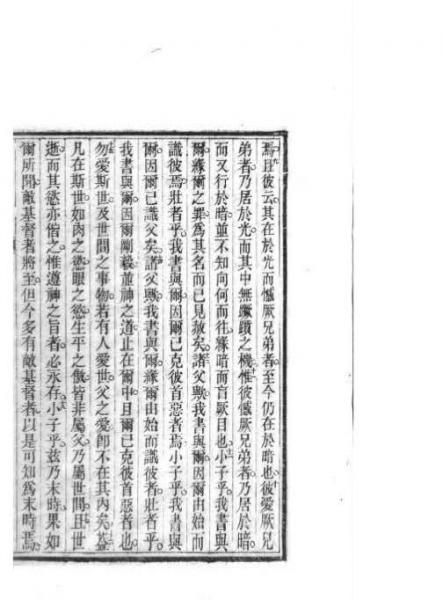 焉且彼云其在於光而憾厥兄弟者至今仍在於暗也彼愛厥兄
弟者乃居於光而其中無蹶躓之機惟彼憾厥兄弟者乃居於暗
而又行於暗並不知向何而往緣暗而盲厥目也小子乎我書與
爾緣爾之罪爲其名而已見赦矣諸父歟我書與爾因爾由始而
識彼焉壯者乎我書與爾因爾已克彼首惡者焉小子乎我書與
爾因爾已識父矣諸父歟我書與爾緣爾由始而識彼者壯者乎
我書與爾因爾剛毅並神之道止在爾中且爾已克彼首惡者也
勿愛斯世及世間之事物若有人愛世父之愛即不在其內矣蓋
凡在斯世如肉之慾眼之慾生平之傲皆非屬父乃屬世間且世
逝而其慾亦偕之惟遵神之旨者必永存小子乎玆乃末時果如
爾所聞敵基督者將至但今多有敵基督者以是可知爲末時焉